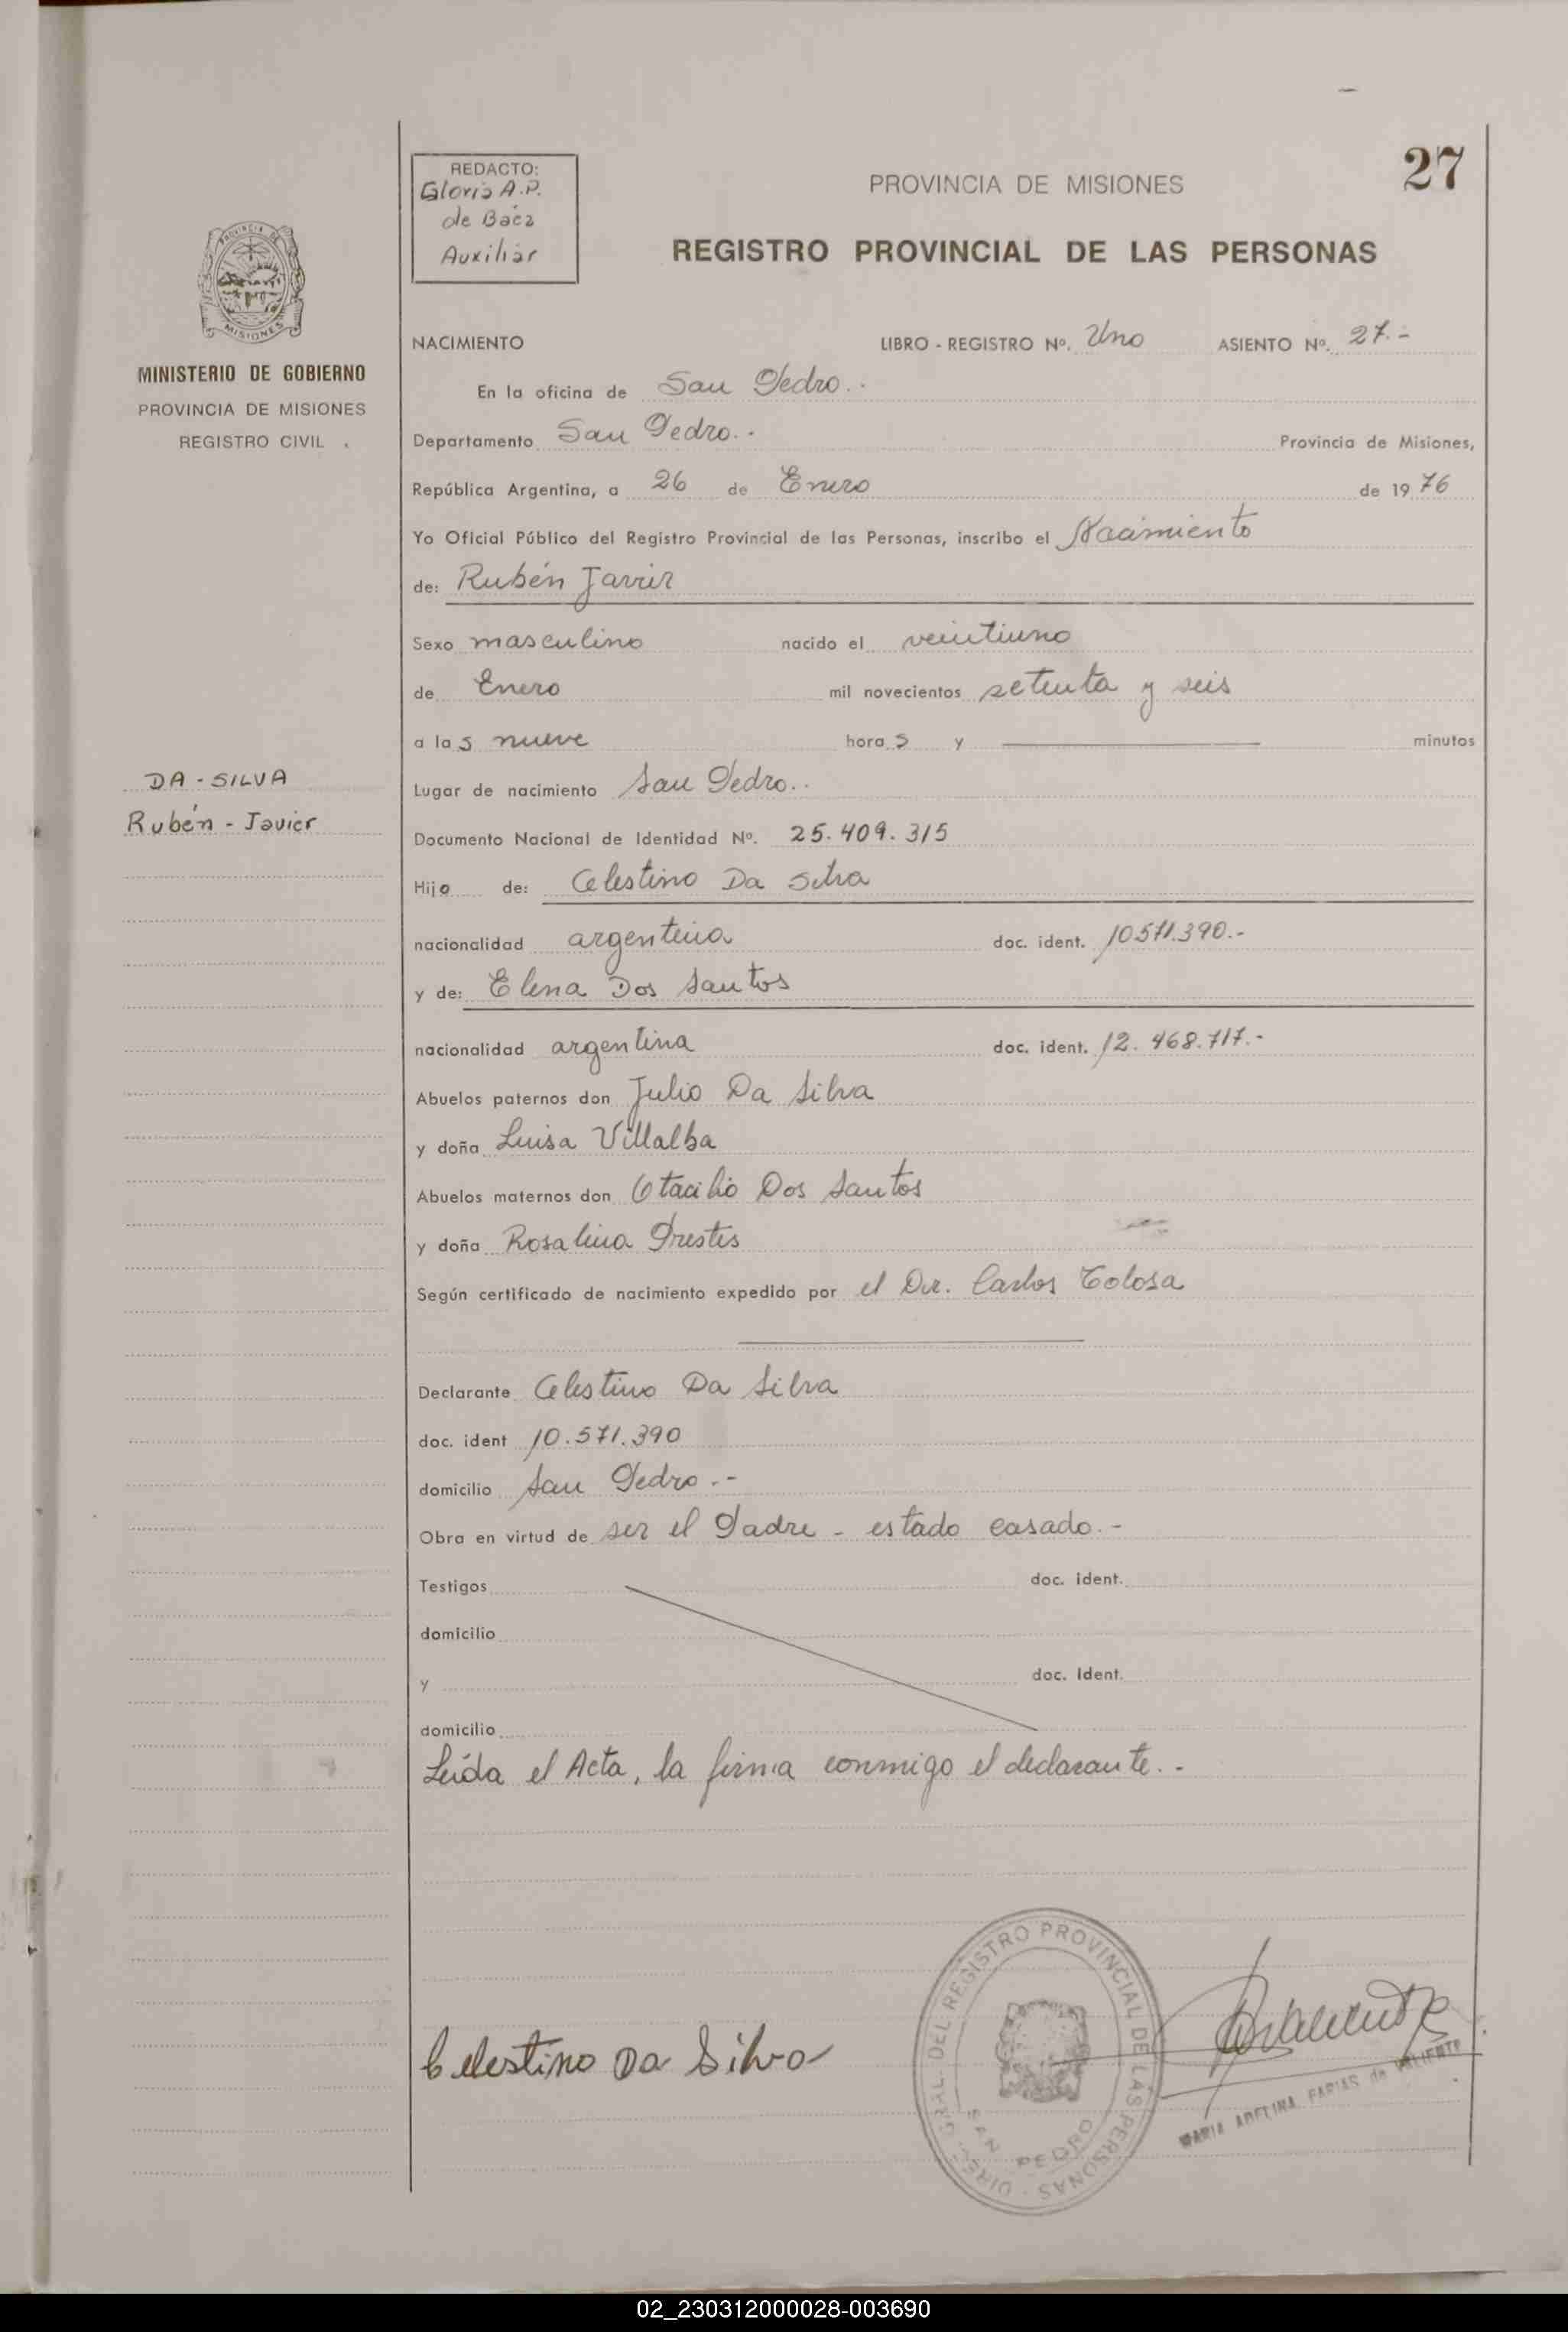 27
REDACTO:
Gloria A.P.
de Báez
Auxiliar
PROVINCIA DE MISIONES
REGISTRO PROVINCIAL DE LAS PERSONAS
PROVINCIA DE
MISIONES
MINISTERIO DE GOBIERNO
PROVINCIA DE MISIONES
REGISTRO CIVIL
DA - SILVA
Rubén - Javier
NACIMIENTO LIBRO - REGISTRO Nº. Uno ASIENTO Nº. 27.-
En la oficina de San Pedro.-
Departamento San Pedro.- Provincia de Misiones,
República Argentina, a 26 de Enero de 1976
Yo Oficial Público del Registro Provincial de las Personas, inscribo el Nacimiento
de: Rubén Javier
Sexo masculino nacido el veintiuno
de Enero mil novecientos setenta y seis
a las nueve horas y ——— minutos
Lugar de nacimiento San Pedro.-
Documento Nacional de Identidad Nº. 25.409.315
Hijo de: Celestino Da Silva
nacionalidad argentina doc. ident. 10.571.390.-
y de: Elena Dos Santos
nacionalidad argentina doc. ident. 12.468.717.-
Abuelos paternos don Julio Da Silva
y doña Luisa Villalba
Abuelos maternos don Otacilio Dos Santos
y doña Rosalina Prestes
Según certificado de nacimiento expedido por el Dr. Carlos Tolosa
Declarante Celestino Da Silva
doc. ident 10.571.390
domicilio San Pedro.-
Obra en virtud de ser el Padre - estado casado.-
Testigos doc. ident.
domicilio
y doc. Ident.
domicilio
Leída el Acta, la firma conmigo el declarante.-
Celestino Da Silva
DIREC. GRAL. DEL REGISTRO PROVINCIAL DE LAS PERSONAS
SAN PEDRO
MARIA ADELINA FARIAS de VALIENTE
02_230312000028-003690